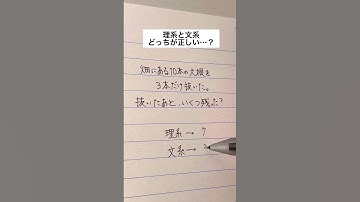 理系と文系
どっちが正しい…？
畑にある10本の大根を
3本だけ抜いた。
抜いたあと、いくつ残った？
理系→ 7
文系→